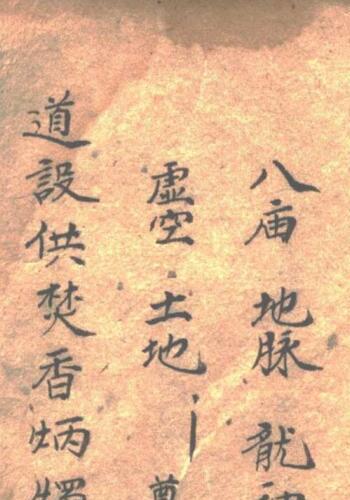 八庙 地脉 龍
虚空 土地
道設供焚香炳燭